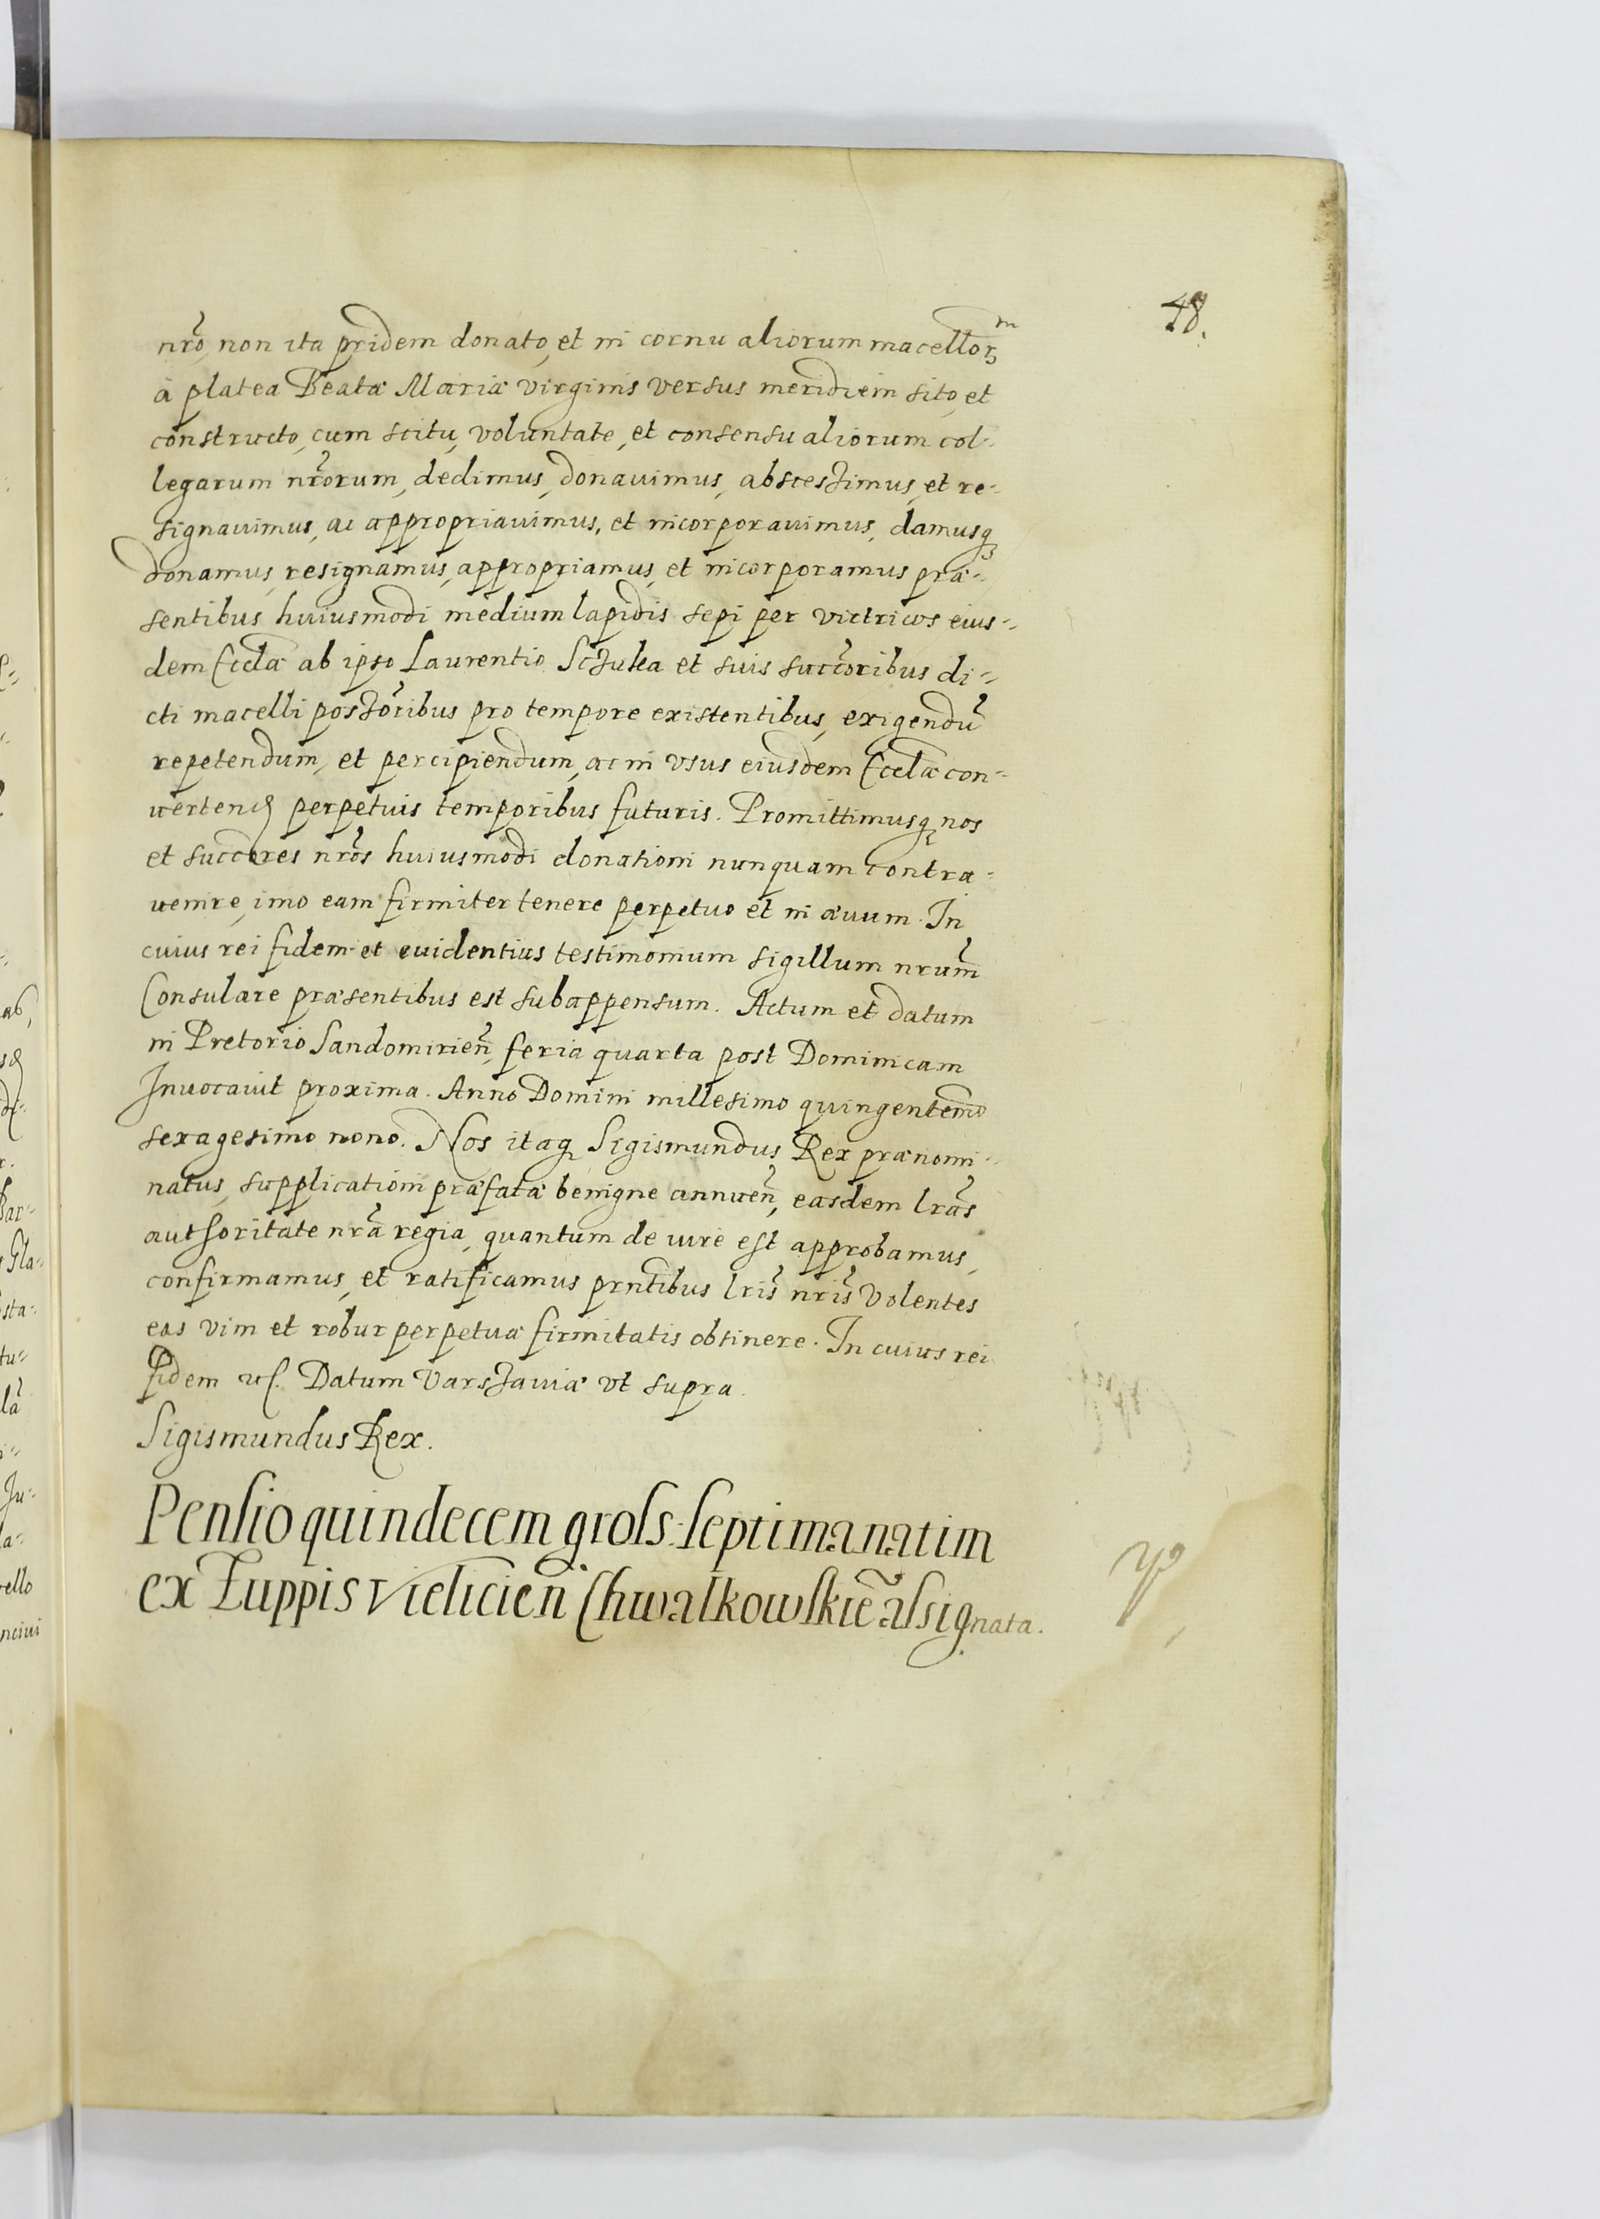 48.
nr̃o, non ita pridem donato, et in cornu aliorum macellor
à platea Beatæ Mariæ virginis versus meridiem sito, et
constructo, cum scitu, voluntate, et consensu aliorum col-
legarum nr̃orum, dedimus, donauimus, abscessimus, et re-
signauimus, ac appropriauimus, et incorporauimus, damusq
donamus, resignamus, appropriamus, et incorporamus præ-
sentibus, huiusmodi medium lapidis sepi per victricos eius-
dem Eccl̃æ ab ipso Laurentio et suis succ̃oribus di-
cti macelli poss̃oribus pro tempore existentibus, exigendũ
repetendum, et percipiendum, ac in vsus eiusdem Eccl̃æ con-
uerten perpetuis temporibus futuris. Promittimusq nos
et succ̃ores nr̃os huiusmodi donationi nunquam contra-
uenire, imo eam firmiter tenere perpetuo et in æuum. In
cuius rei fidem et euidentius testimonium sigillum nr̃um
Consulare præsentibus est subappensum. Actum et datum
in Pretorio Sandomirieñ, feria quarta post Dominicam
Inuocauit proxima. Anno Domini millesimo quingentẽmo
sexagesimo nono. Nos itaq Sigismundus Rex prænomi-
natus, supplicationi præfatæ benigne annueñ, easdem lr̃as
authoritate nr̃a regia, quantum de iure est approbamus,
confirmamus, et ratificamus prñtibus lr̃is nr̃is Volentes
eas vim et robur perpetuæ firmitatis obtinere. In cuius rei
fidem Datum Varssauiæ vt supra.
Sigismundus Rex.
Pensio quindecem gross. septimanatim
ex Zuppis Vielicieñ Chwalkowskiẽ assignata.